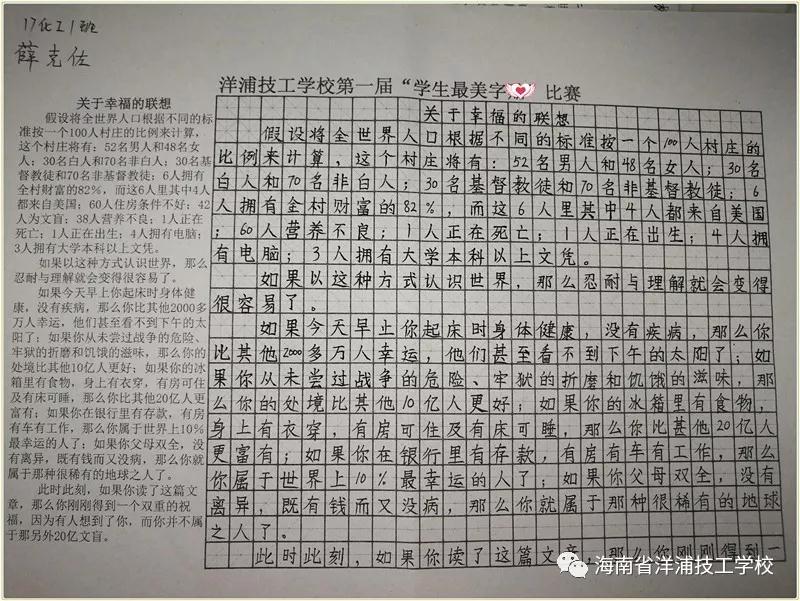 17化工1班
薛克佐
洋浦技工学校第一届“学生最美字 比赛
关于幸福的联想
假设将全世界人口根据不同的标
准按一个100人村庄的比例来计算，
这个村庄将有：52名男人和48名女
人；30名白人和70名非白人；30名基
督教徒和70名非基督教徒；6人拥有
全村财富的82%，而这6人里其中4人
都来自美国；60人住房条件不好；42
人为文盲；38人营养不良；1人正在
死亡；1人正在出生；4人拥有电脑；
3人拥有大学本科以上文凭。
如果以这种方式认识世界，那么
忍耐与理解就会变得很容易了。
如果今天早上你起床时身体健
康，没有疾病，那么你比其他2000多
万人幸运，他们甚至看不到下午的太
阳了；如果你从未尝过战争的危险、
牢狱的折磨和饥饿的滋味，那么你的
处境比其他10亿人更好；如果你的冰
箱里有食物，身上有衣穿，有房可住
及有床可睡，那么你比其他20亿人更
富有；如果你在银行里有存款，有房
有车有工作，那么你属于世界上10%
最幸运的人了；如果你父母双全，没
有离异，既有钱而又没病，那么你就
属于那种很稀有的地球之人了。
此时此刻，如果你读了这篇文
章，那么你刚刚得到一个双重的祝
福，因为有人想到了你，而你并不属
于那另外20亿文盲。
关于幸福的联想
假设将全世界人口根据不同的标准按一个100人村庄的
比例来计算，这个村庄将有：52名男人和48名女人；30名
白人和70名非白人；30名基督教徒和70名非基督教徒；6
人拥有金村财富的82%，而这6人里其中4人都来自美国
；60人营养不良；1人正在死亡；1人正在出生；4人拥
有电脑；3人拥有大学本科以上文凭。
如果以这种方式认识世界，那么忍耐与理解就会变得
很容易了。
如果今天早上你起床时身体健康，没有疾病，那么你
比其他2000多万人幸运，他们甚至看不到下午的太阳了；如
果你从未尝过战争的危险、牢狱的折磨和饥饿的滋味，那
么你的处境比其他10亿人更好；如果你的冰箱里有食物，
身上有衣穿，有房可住及有床可睡，那么你比甚他20亿人
更富有；如果你在银行里有存款，有房有车有工作，那么
你属于世界上10%最幸运的人了；如果你父母双全，没有
离异，既有钱而又没病，那么你就属于那种很稀有的地球
之人了。
此时此刻，如果你读了这篇文章，那么你刚刚得到一
海南省洋浦技工学校